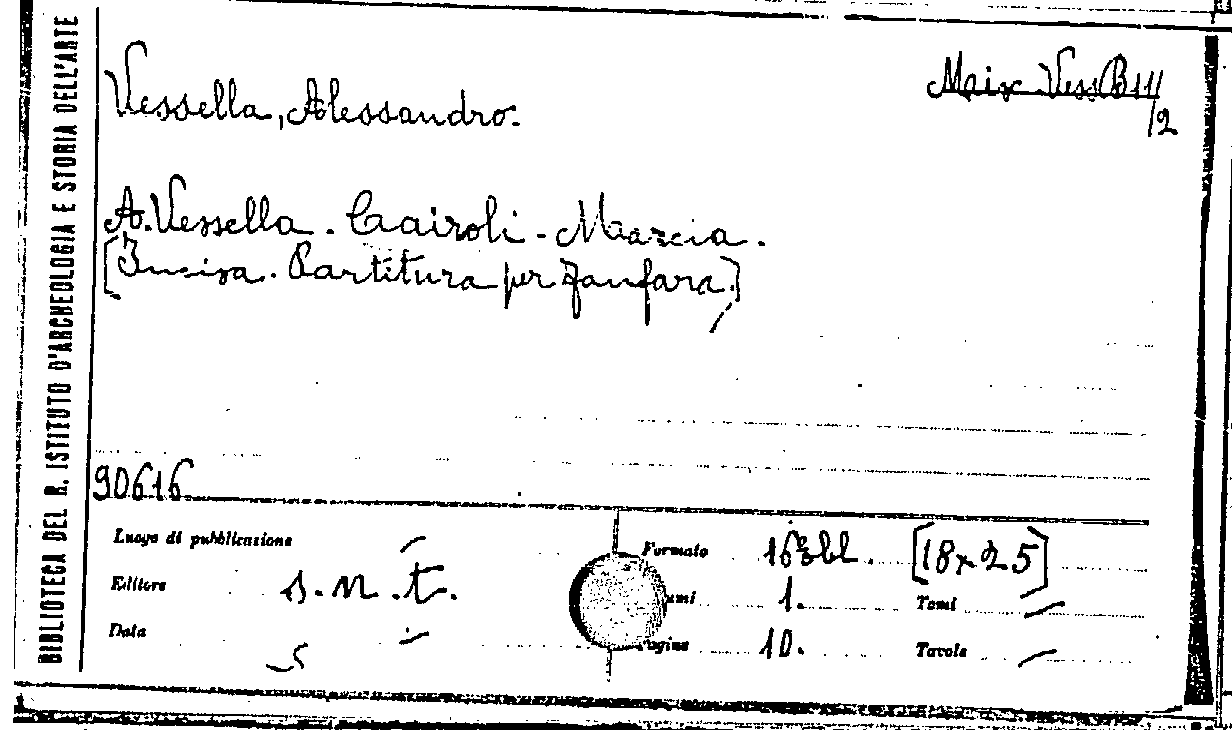 BIBLIOTECA DEL R. ISTITUTO D'ARCHEOLOGIA E STORIA DELL'ARTE
Vessella, Alessandro.
Misc. Vess B 111/2
A. Vessella. Cairoli - Marcia.
[Incisa. Partitura per fanfara.]
90616
Luogo di pubblicazione —
Editore s. n. t.
Data —
Formato 16° obl. [18x25]
umi 1. Tomi —
Pagine 10. Tavole —